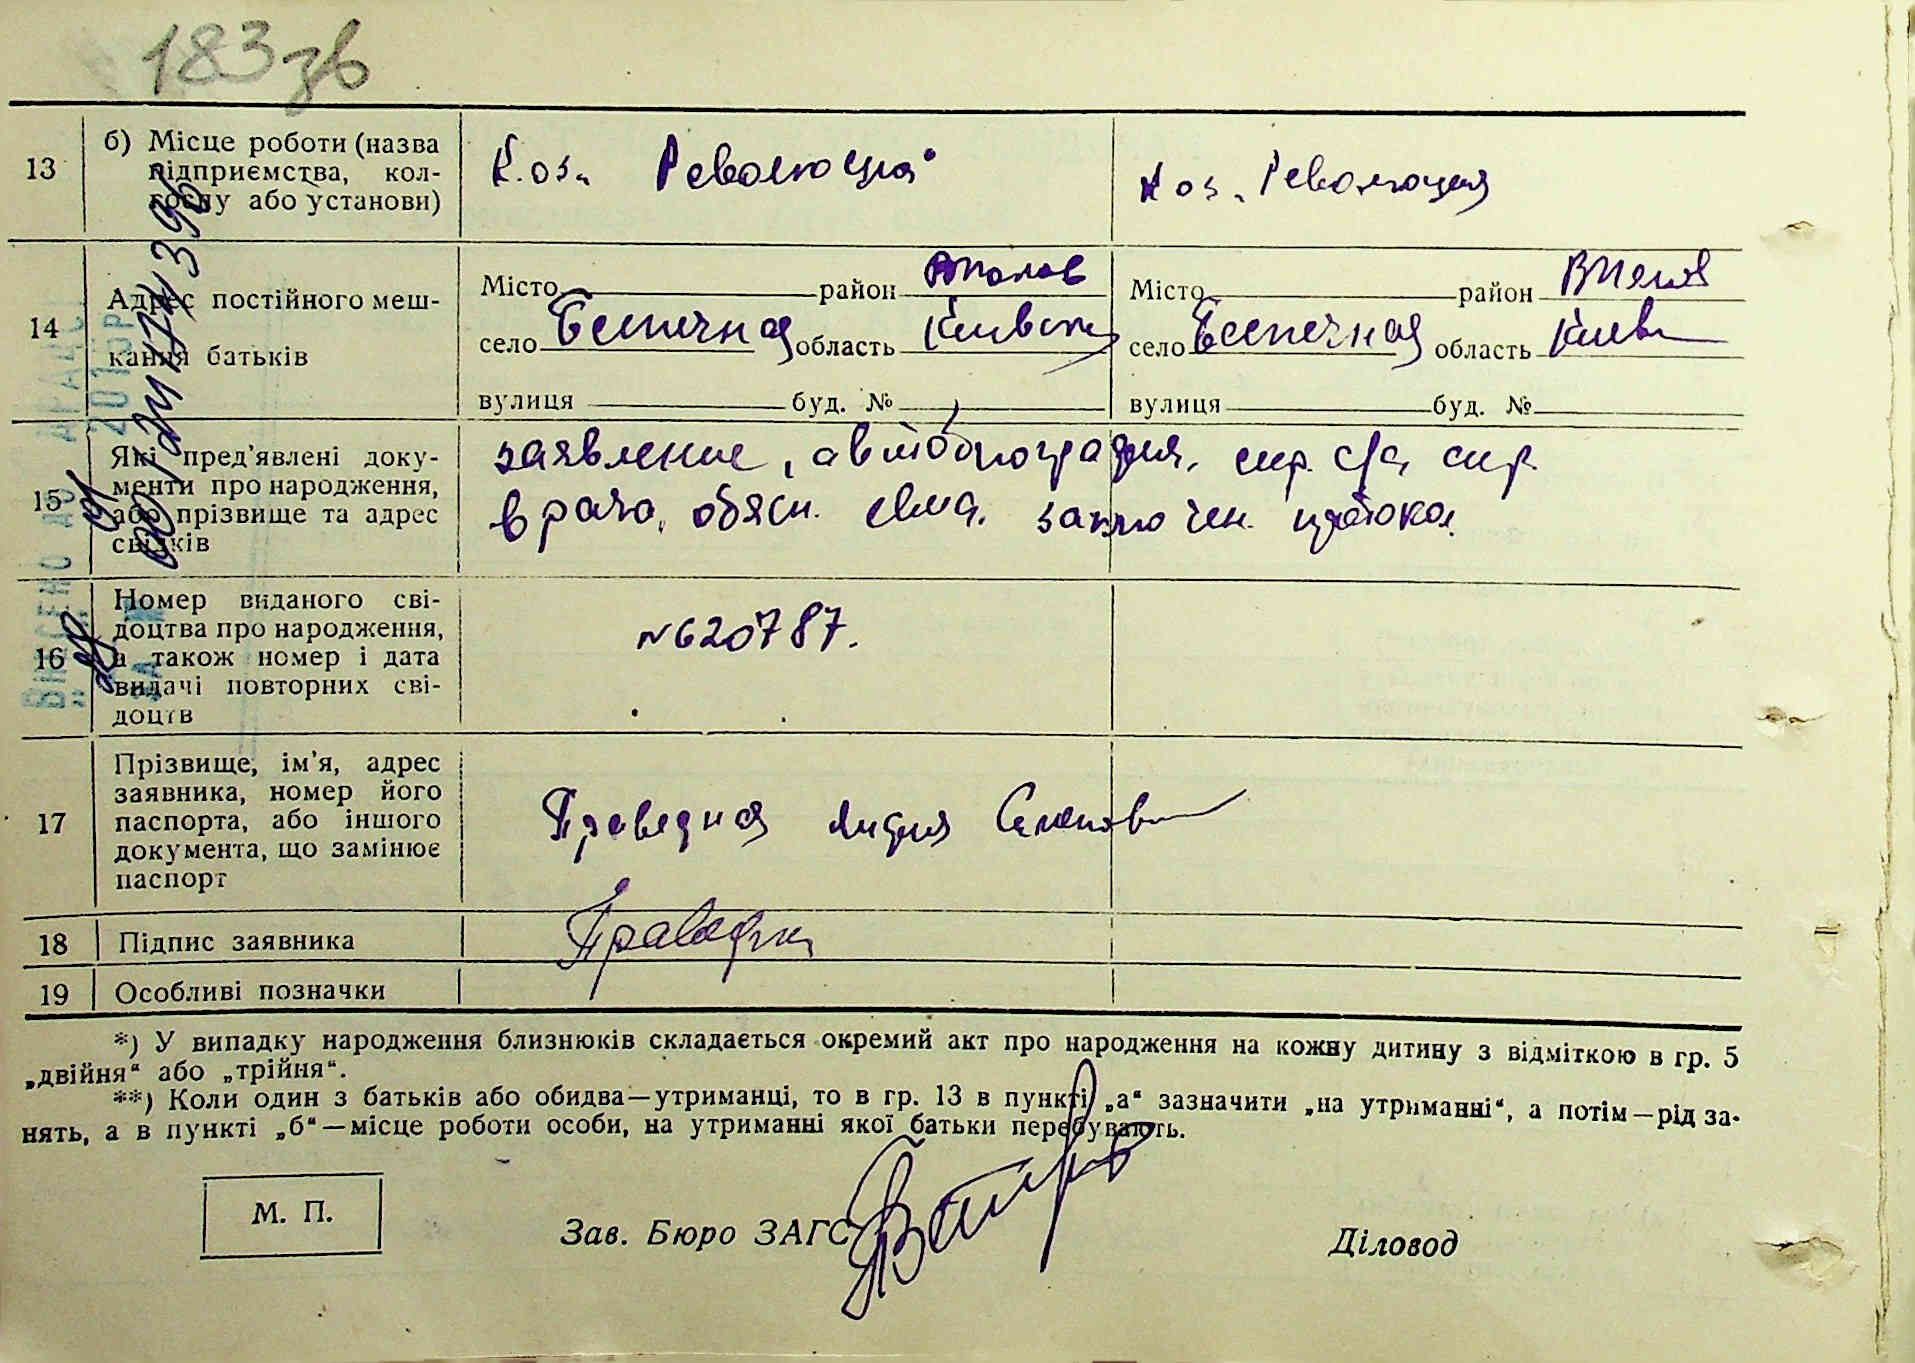 183 зв
13 б) Місце роботи (назва підприємства, кол-
госпу або установи)
Коз. Революция
Коз. Революция
14 Адрес постійного меш-
кання батьків
Місто район
село область Киевск
вулиця буд. №
Місто район
село область Киев
вулиця буд. №
15 Які пред'явлені доку-
менти про народження,
або прізвище та адрес
свідків
заявление, автобиография, спр. с/с, спр.
врача, объясн. заключен. протокол.
16 Номер виданого сві-
доцтва про народження,
а також номер і дата
видачі повторних сві-
доцтв
N620787.
17 Прізвище, ім'я, адрес
заявника, номер його
паспорта, або іншого
документа, що замінює
паспорт
Праведная Лидия Семеновн
18 Підпис заявника
19 Особливі позначки
*) У випадку народження близнюків складається окремий акт про народження на кожну дитину з відміткою в гр. 5
„двійня“ або „трійня“.
**) Коли один з батьків або обидва—утриманці, то в гр. 13 в пункті „а“ зазначити „на утриманні“, а потім—рід за-
нять, а в пункті „б“—місце роботи особи, на утриманні якої батьки перебувають.
М. П.
Зав. Бюро ЗАГС
Діловод